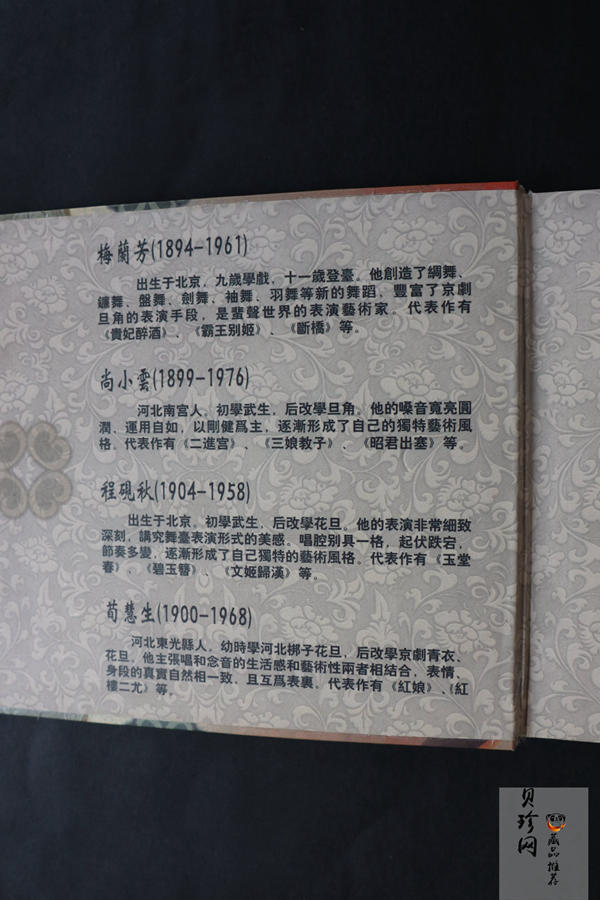 梅蘭芳(1894-1961)
出生于北京，九歲學戲，十一歲登臺。他創造了綢舞、
鑢舞、盤舞、劍舞、袖舞、羽舞等新的舞蹈，豐富了京劇
旦角的表演手段，是蜚聲世界的表演藝術家。代表作有
《貴妃醉酒》、《霸王别姬》、《斷橋》等。
尚小雲(1899-1976)
河北南宮人，初學武生，后改學旦角，他的嗓音寬亮圓
潤、運用自如，以剛健爲主，逐漸形成了自己的獨特藝術風
格。代表作有《二進宮》、《三娘教子》、《昭君出塞》等。
程硯秋(1904-1958)
出生于北京。初學武生，后改學花旦。他的表演非常細致
深刻，講究舞臺表演形式的美感。唱腔别具一格，起伏跌宕，
節奏多變，逐漸形成了自己獨特的藝術風格。代表作有《玉堂
春》、《碧玉簪》、《文姬歸漢》等。
荀慧生(1900-1968)
河北東光縣人，幼時學河北梆子花旦，后改學京劇青衣、
花旦。他主張唱和念音的生活感和藝術性兩者相結合，表情、
身段的真實自然相一致，且互爲表裏。代表作有《紅娘》、《紅
樓二尤》等。
貝珍网
藏品推荐